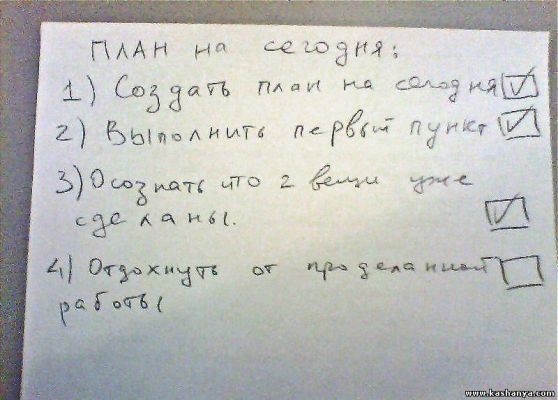 ПЛАН на сегодня:
1) Создать план на сегодня
2) Выполнить первый пункт
3) Осознать что 2 вещи уже
сделаны.
4) Отдохнуть от проделанной
работы
www.kashanya.com